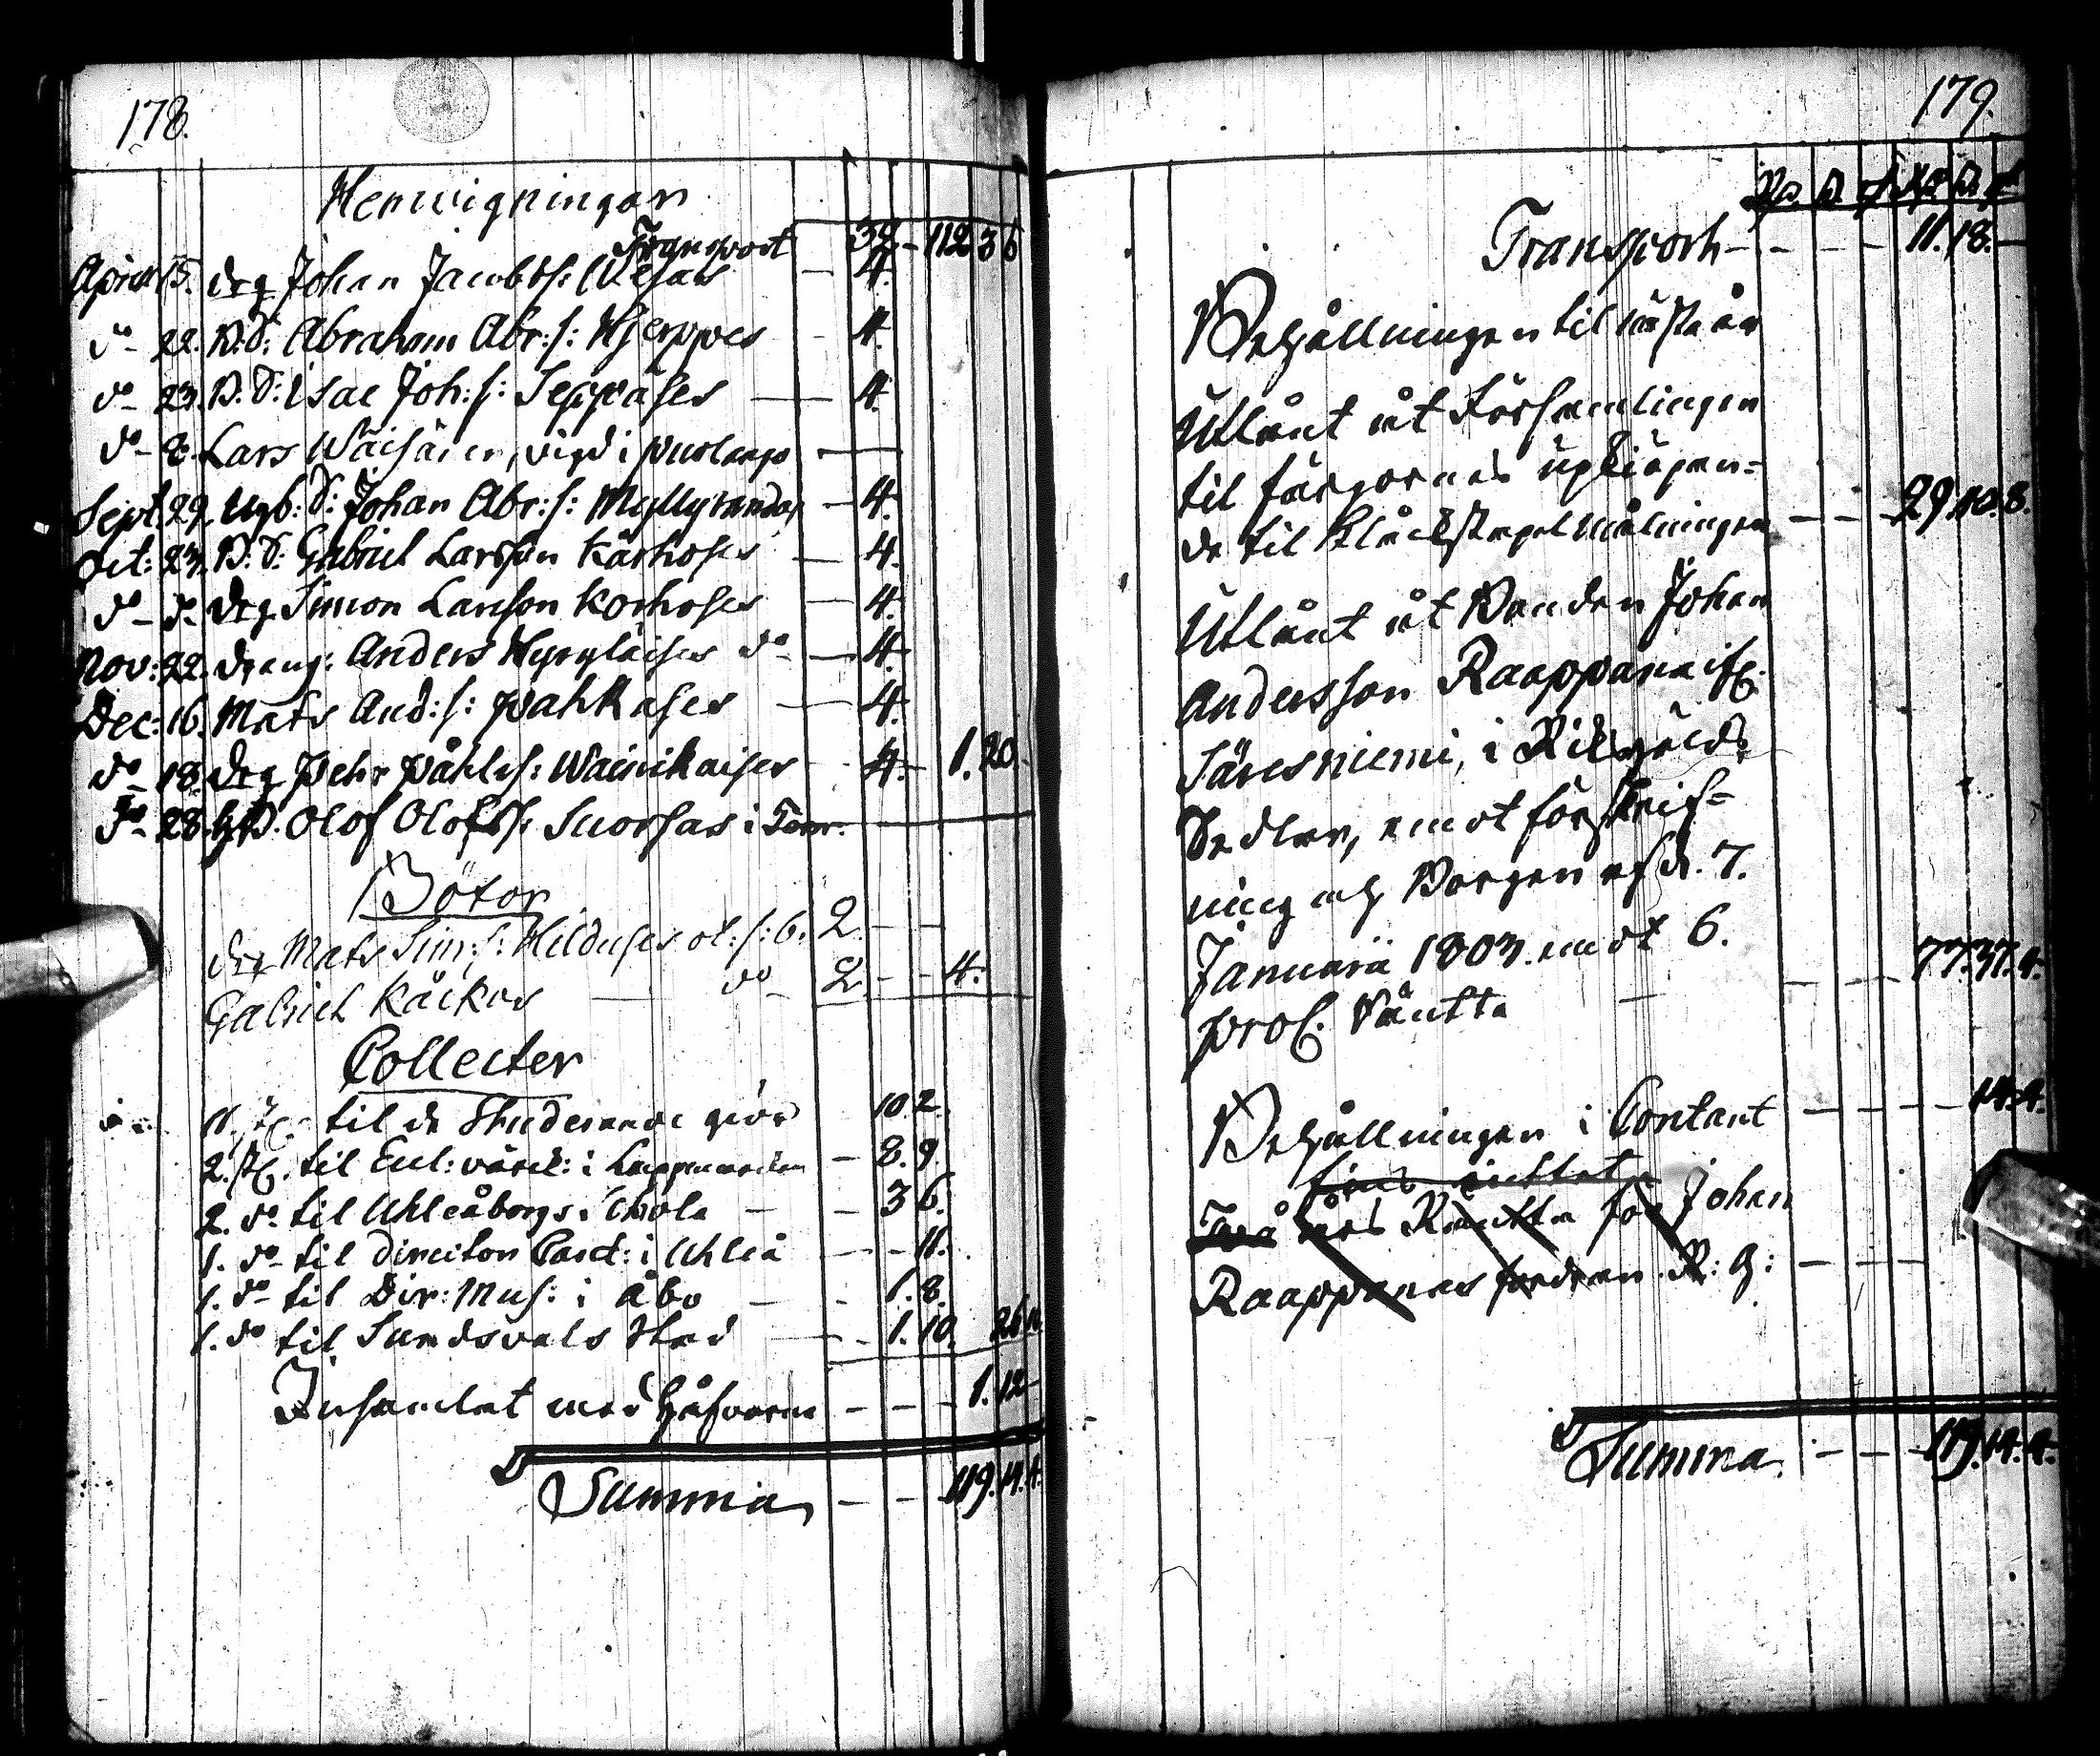 178.
Hemvigningar
Transport 32 - 112 36
April 15. drg Johan Jacobss: Wesas - 4.
do - 22. B. S: Abraham Abr: s: Hjerppes - 4.
do - 23. B. S: Isac Joh: s: Seppäses - 4.
do - Lars Wäisäinen, vigd i puolango -
Sept. 29. Ugb: S: Johan Abr: s: Myllyrandas - 4.
Oct: 23. B. S: Gabriel Larsson Korhoses - 4.
do - do drg Simon Larsson Korhoses - 4.
Nov: 22. dreng: Anders Hyryläises do - 4.
Dec: 16. Mats And: s: pahkases - 4.
do - 18. drg pehr påhls: Wäinikaises - 4. 1. 20.
do - 28. Olof Olofss: Suorsas i
Böter
drg Mats Sim: s: Hilduses ol: s: b: 2. - -
Gabriel Kåckos - do - 2 - - 4.
Collecter
11. st. til de Studerande giör 10. 2.
2. st. til Eccl: värck: i Lappmarcken - 8. 9.
2. do til Uhleåborgs Schola - - 3 6.
1. do til direction Pauct: i Uhleå - - 11.
1. do til Dir: Mus: i Åbo - - 1. 8.
1. do til Sundsvals Stad - - 1. 10. 26
Insamlat med Håfvarne - - - 1. 12 -
Summa - - 119. 14. 4.
179.
Transport - - - - 11. 18. -
Behållningen til nästa år
Utlånt åt Församlingen
til färgornes upkiöpan-
de til Klåckstapel målningen - - - 29. 10. 8.
Utlånt åt Bonden Johan
Andersson Raappana ifr.
Säresniemi, i Riksgälds
Sedlar, emot förskrif-
ning och Borgen af d. 7.
Januarii 1803. emot 6.
proc. Räntta - - - 77. 37. 4.
Behållningen i Contant - - - - 14. 4.
Två års Räntta för Johan
Raappanas fordran R: g: - - -
Summa. - - - 119. 14. 4.